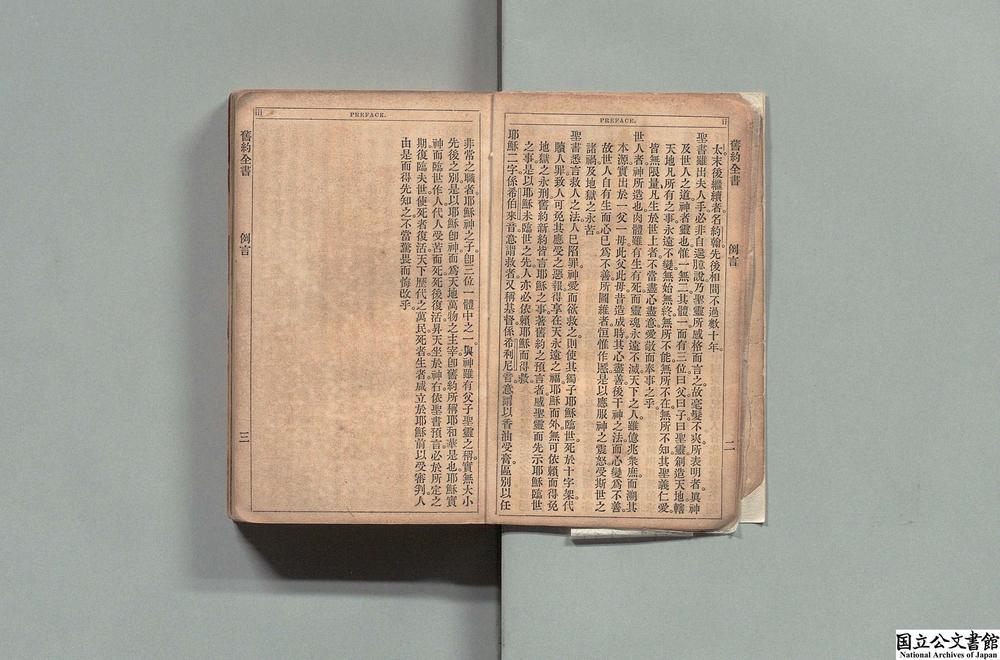 ii
PREFACE.
舊約全書 例言 二
太末後繼續者名約翰先後相間不過數十年。
聖書雖出夫人手必非自逞臆說乃聖靈所感格而言之故毫髮不爽所表明者眞神
及世人之道神者靈也惟一無二其體一而有三位曰父曰子曰聖靈創造天地轄
天地凡所有之事永遠不變無始無終無所不能無所不在無所不知其聖義仁愛
皆無限量凡生於世上者不當盡心盡意愛敬而奉事之乎。
世人者神所造也肉體雖有生有死而靈魂永遠不滅天下之人雖億兆衆庶而溯其
本源實出於一父一母此父此母昔造成時其心盡善後干神之法而心變爲不善。
故世人自有生而心已爲不善所圖維者恒惟作慝是以應服神之震怒受斯世之
諸禍及地獄之永苦
聖書悉言救人之法人已陷罪神愛而欲救之則使其獨子耶穌臨世死於十字架代
贖人罪致人可免其應受之惡報得享在天永遠之福耶穌而外無可依賴而得免
地獄之永刑舊約新約皆言耶穌之事著舊約之預言者咸聖靈而先示耶穌臨世
之事是以耶穌未臨世之先人亦必依賴耶穌而得救。
耶穌二字係希伯來音意謂救者又稱基督係希利尼音意謂以香油受膏區別以任
iii
PREFACE.
非常之職者耶穌神之子卽三位一體中之一與神雖有父子聖靈之稱實無大小
先後之別是以耶穌卽神而爲天地萬物之主宰卽舊約所稱耶和華是也耶穌實
神而臨世作人代人受苦而死死後復活昇天坐於神右依聖書預言必於所定之
期復臨夫世使死者復活天下歷代之萬民死者生者咸立於耶穌前以受審判人
由是而得先知之不當驚畏而悔改乎
舊約全書 例言 三
国立公文書館
National Archives of Japan